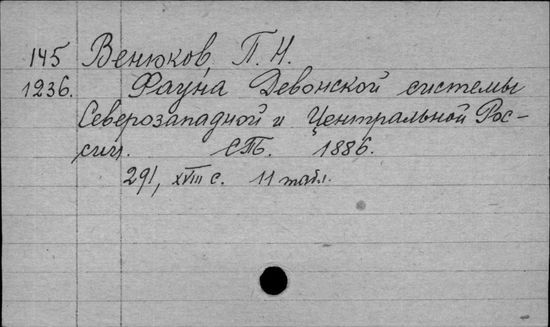 145 Венюков, П. Н.
1236. Фауна Девонской системы
Северозападной и Центральной Рос-
сии. СПб. 1886.
291, XVIII с. 11 табл.